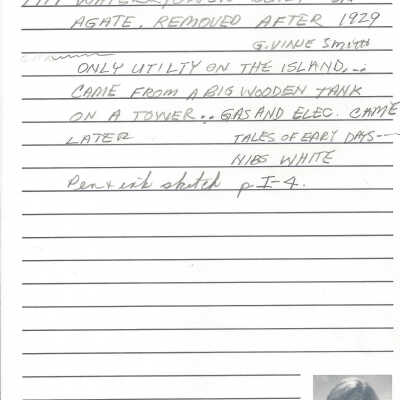 AGATE. REMOVED AFTER 1929
G. VINNE SMITH
ONLY UTILTY ON THE ISLAND...
CAME FROM A BIG WOODEN TANK
ON A TOWER.. GAS AND ELEC. CAME
LATER TALES OF EARY DAYS--
NIBS WHITE
Pen + ink sketch p I-4.